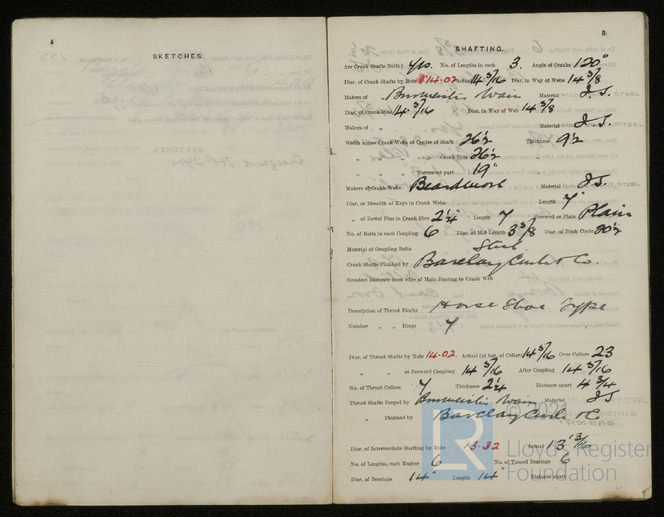 4
SKETCHES.
5
SHAFTING.
Are Crank Shafts Built? Yes. No. of Lengths in each 3. Angle of Cranks 120°
Diar. of Crank Shafts by Rule 14.02 Actual 14 3/16 Diar. in Way of Webs 14 3/8
Makers of " Burmeister Wain Material I.S.
Diar. of Crank Pins 14 3/16 Diar. in Way of Web 14 3/8
Makers of " Material I.S.
Width across Crank Webs at Centre of Shaft 26 1/2 Thickness 9 1/2
" " Crank Pins 26 1/2 "
" " Narrowest part 19" "
Makers of Crank Webs Beardmore Material I.S.
Diar. or Breadth of Keys in Crank Webs Length 7"
" of Dowel Pins in Crank Pins 2 1/4" Length 7 Screwed or Plain Plain
No. of Bolts in each Coupling 6 Diar. at Mid Length 3 3/8 Diar. of Pitch Circle 20 1/2
Material of Coupling Bolts Steel
Crank Shafts Finished by Barclay Curle & Co.
Greatest Distance from edge of Main Bearing to Crank Web
Description of Thrust Blocks Horse Shoe Type
Number " " Rings 7
Diar. of Thrust Shafts by Rule 14.02 Actual (at bot. of Collars) 14 3/16 Over Collars 23
" " at Forward Coupling 14 3/16 After Coupling 14 3/16
No. of Thrust Collars 7 Thickness 2 1/4 Distance apart 4 3/4
Thrust Shafts Forged by Burmeister Wain Material I.S
" Finished by Barclay Curle & Co
Diar. of Intermediate Shafting by Rule 13.32 Actual 13 13/16
No. of Lengths, each Engine 6 No. of Tunnel Bearings 6
Diar. of Bearings 14" Length 14" Distance apart
© 2021
LR
Lloyd's Register
Foundation